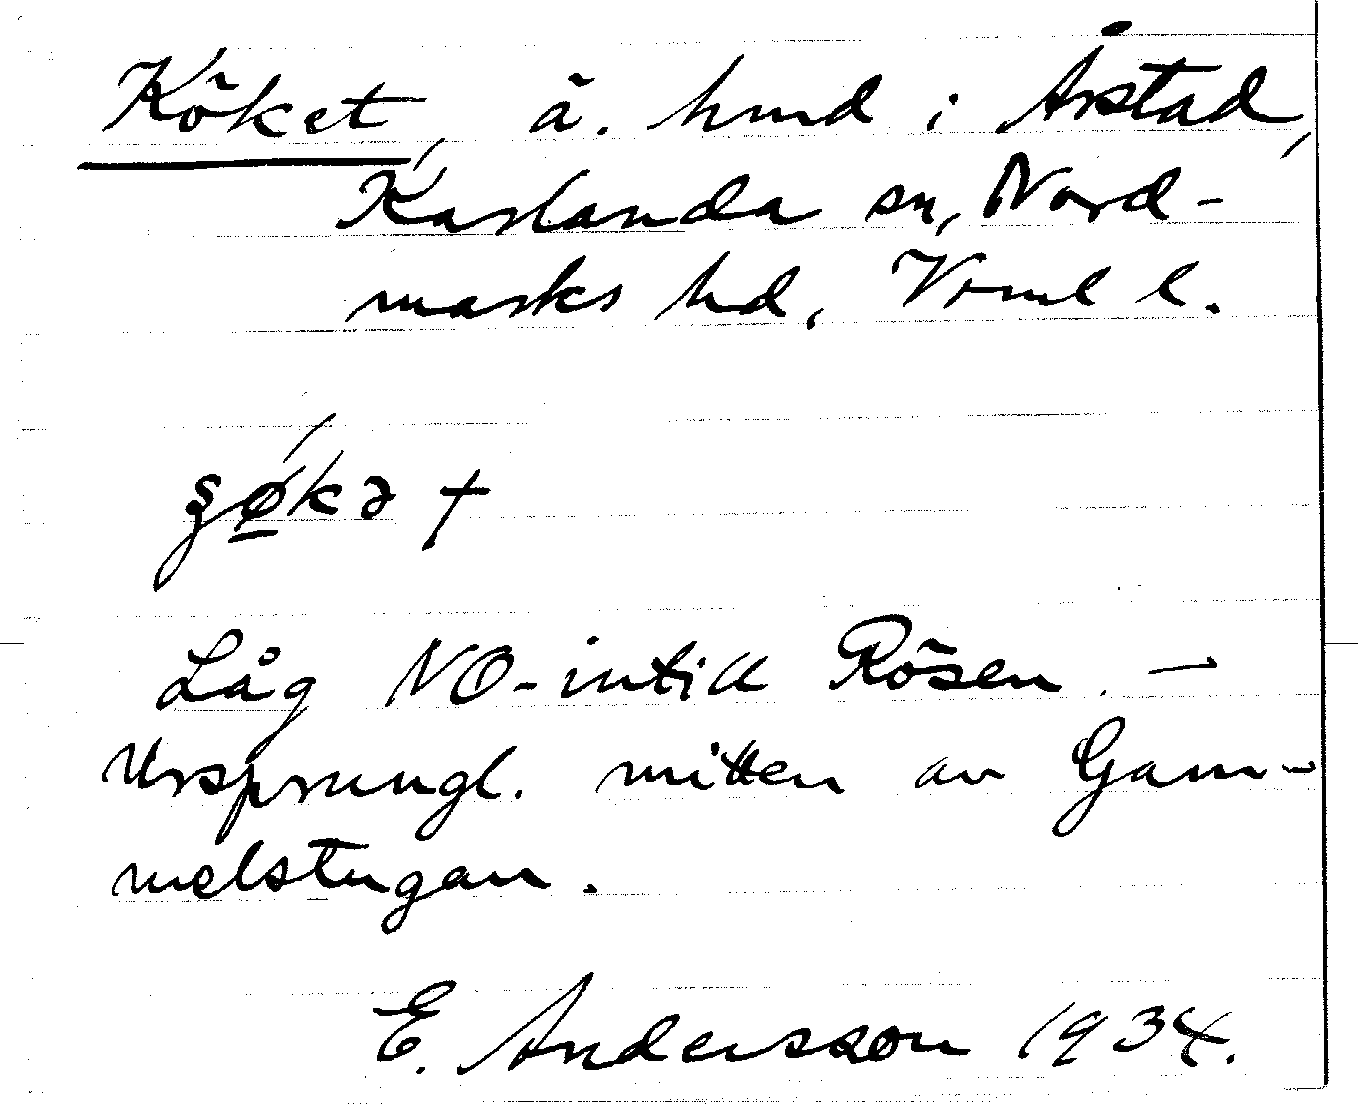 Köket, ä. hmd i Årstad,
Karlanda sn, Nord-
marks hd, Vrml l.
Låg NO-intill Rösen. —
Ursprungl. mitten av Gam-
melstugan.
E. Andersson 1934.